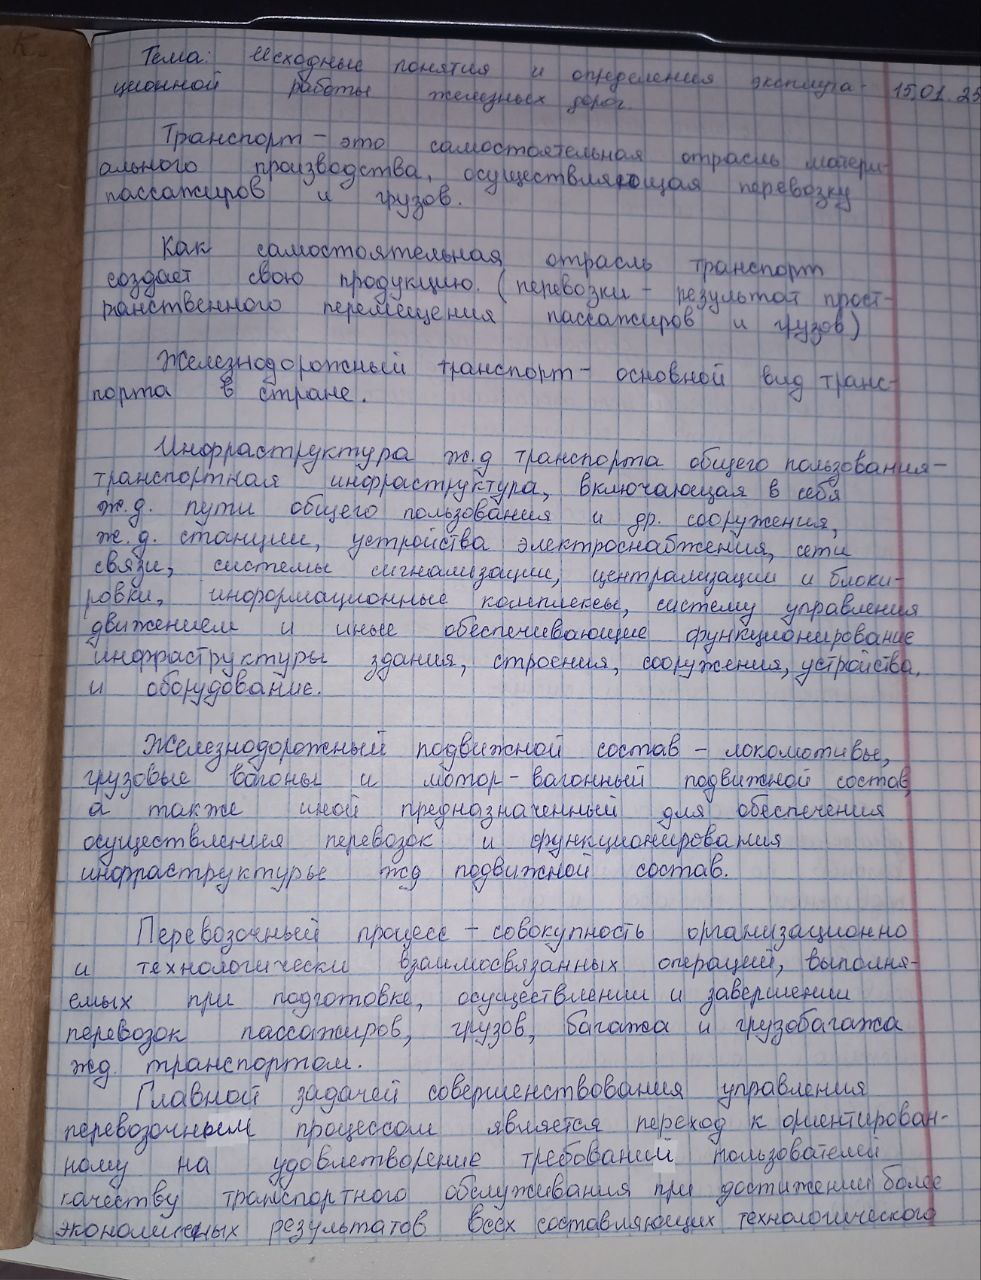 Тема: Исходные понятия и определения эксплута- 15.01.25
ционной работы железных дорог
Транспорт - это самостоятельная отрасль матери-
ального производства, осуществляющая перевозку
пассажиров и грузов.
Как самостоятельная отрасль транспорт
создает свою продукцию. (перевозки - результат прост-
ранственного перемещения пассажиров и грузов)
Железнодорожный транспорт - основной вид транс-
порта в стране.
Инфраструктура ж.д транспорта общего пользования -
транспортная инфраструктура, включающая в себя
ж.д. пути общего пользования и др. сооружения,
ж.д. станции, устройства электроснабжения, сети
связи, системы сигнализации, централизации и блоки-
ровки, информационные комплексы, систему управления
движением и иные обеспечивающие функционирование
инфраструктуры здания, строения, сооружения, устройства,
и оборудование.
Железнодорожный подвижной состав - локомотивы,
грузовые вагоны и мотор-вагонный подвижной состав,
а также иной предназначенный для обеспечения
осуществления перевозок и функционирования
инфраструктуры жд подвижной состав.
Перевозочный процесс - совокупность организационно
и технологически взаимосвязанных операций, выполня-
емых при подготовке, осуществлении и завершении
перевозок пассажиров, грузов, багажа и грузобагажа
жд. транспортом.
Главной задачей совершенствования управления
перевозочным процессом является переход к ориентирован-
ному на удовлетворение требований пользователей
качеству транспортного обслуживания при достижении более
экономичных результатов всех составляющих технологического